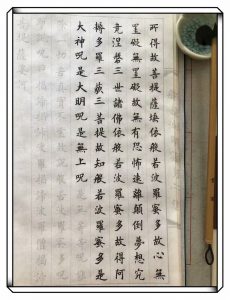 所得故菩提薩埵依般若波羅蜜多故心無
罣礙無罣礙故無有恐怖遠離顛倒夢想究
竟涅磐三世諸佛依般若波羅蜜多故得阿
耨多羅三藐三菩提故知般若波羅蜜多是
大神呪是大明呪是無上呪